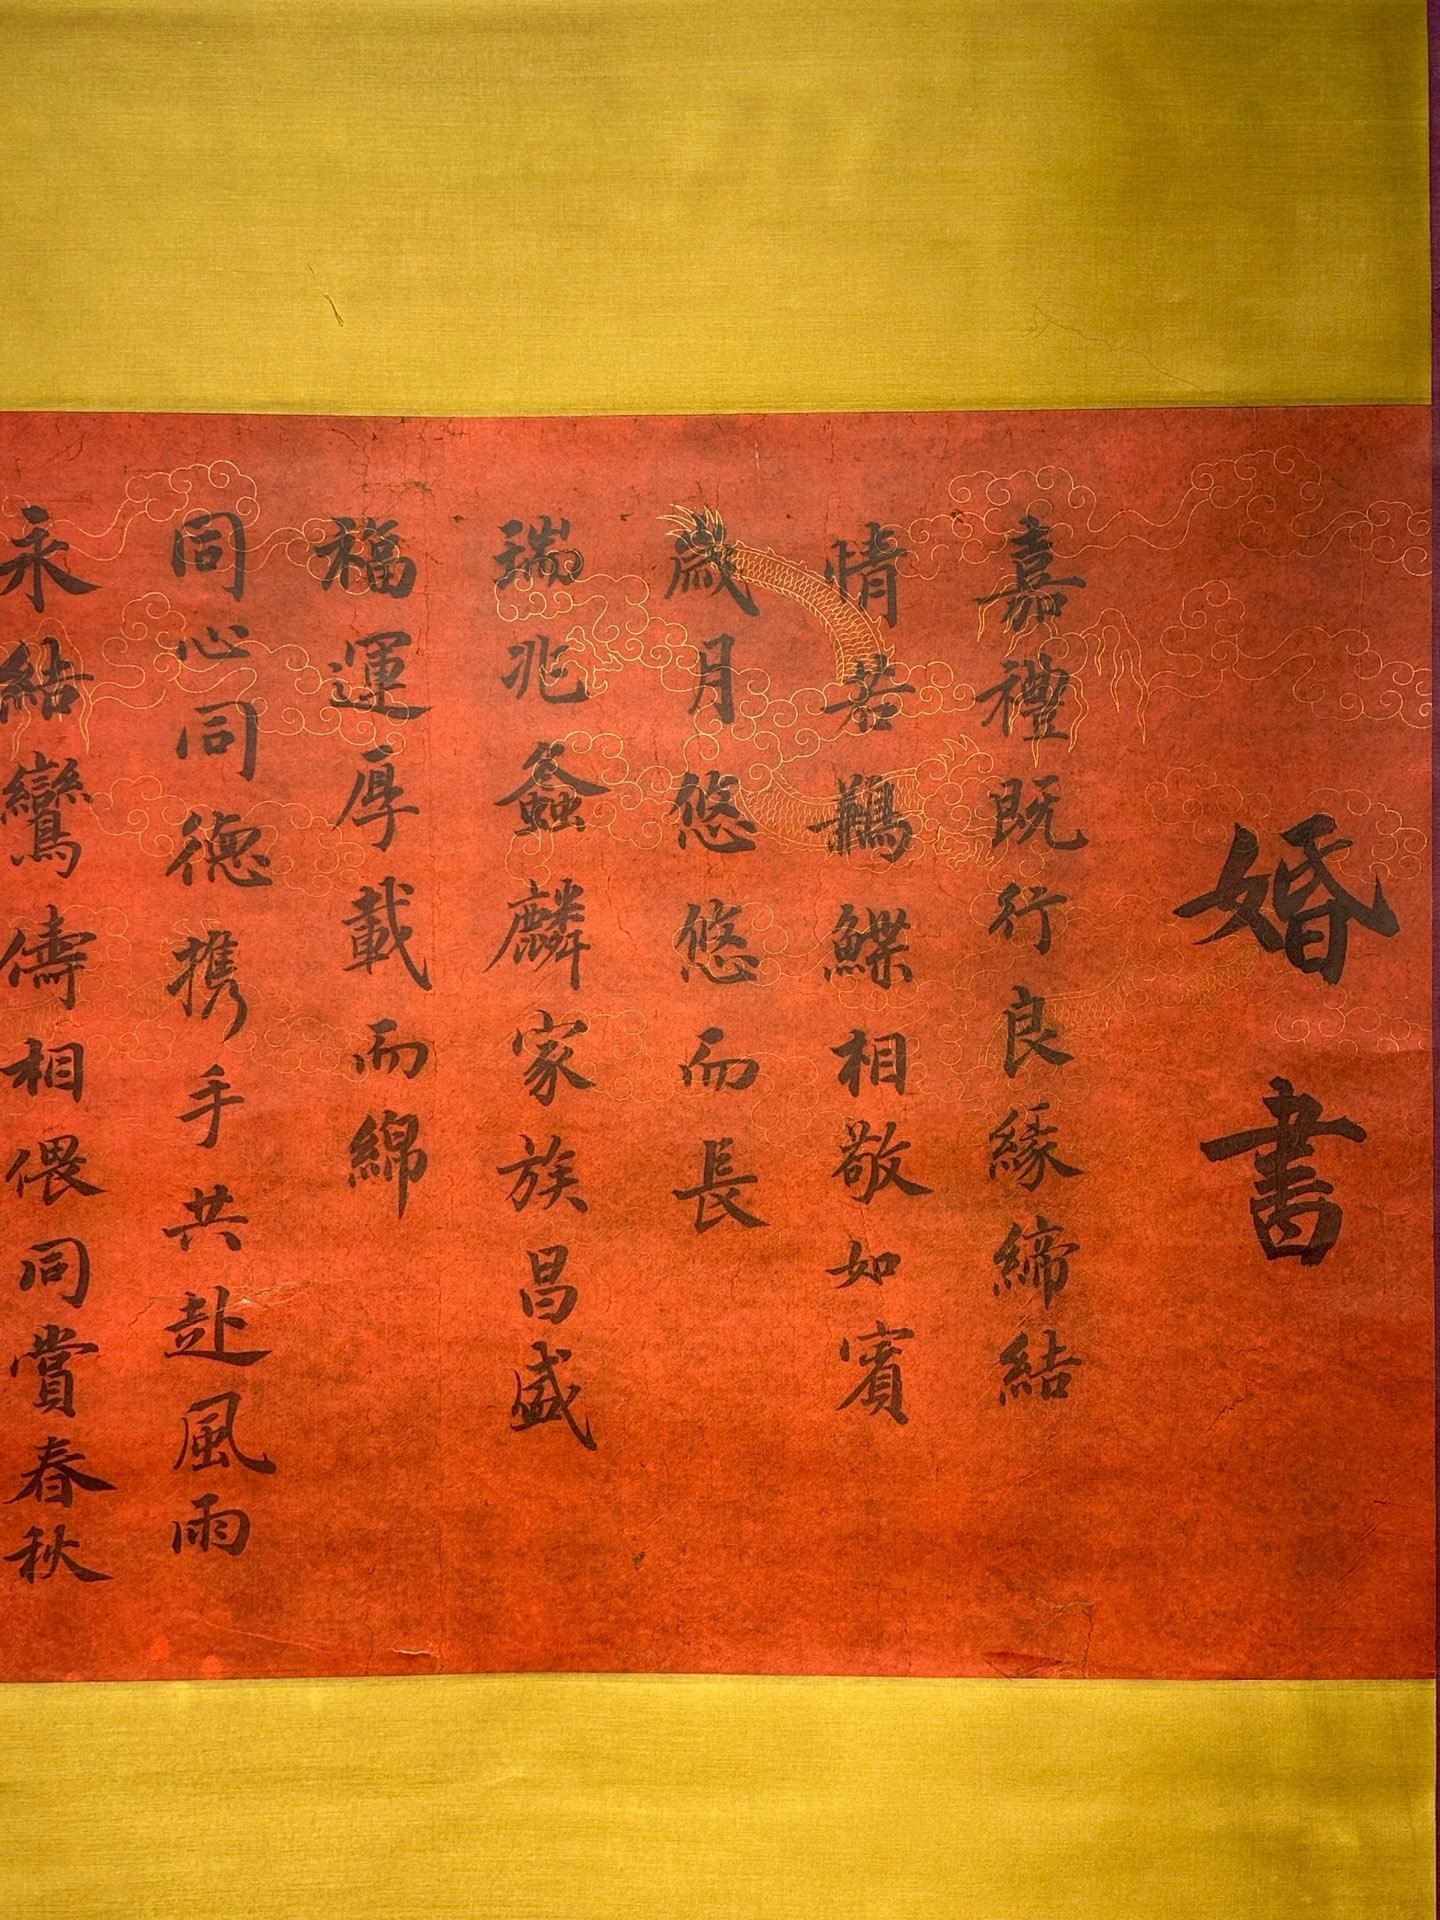 婚書
嘉禮既行良緣締結
情若鶼鰈相敬如賓
歲月悠悠而長
瑞兆螽麟家族昌盛
福運厚載而綿
同心同德携手共赴風雨
永結鸞儔相偎同賞春秋